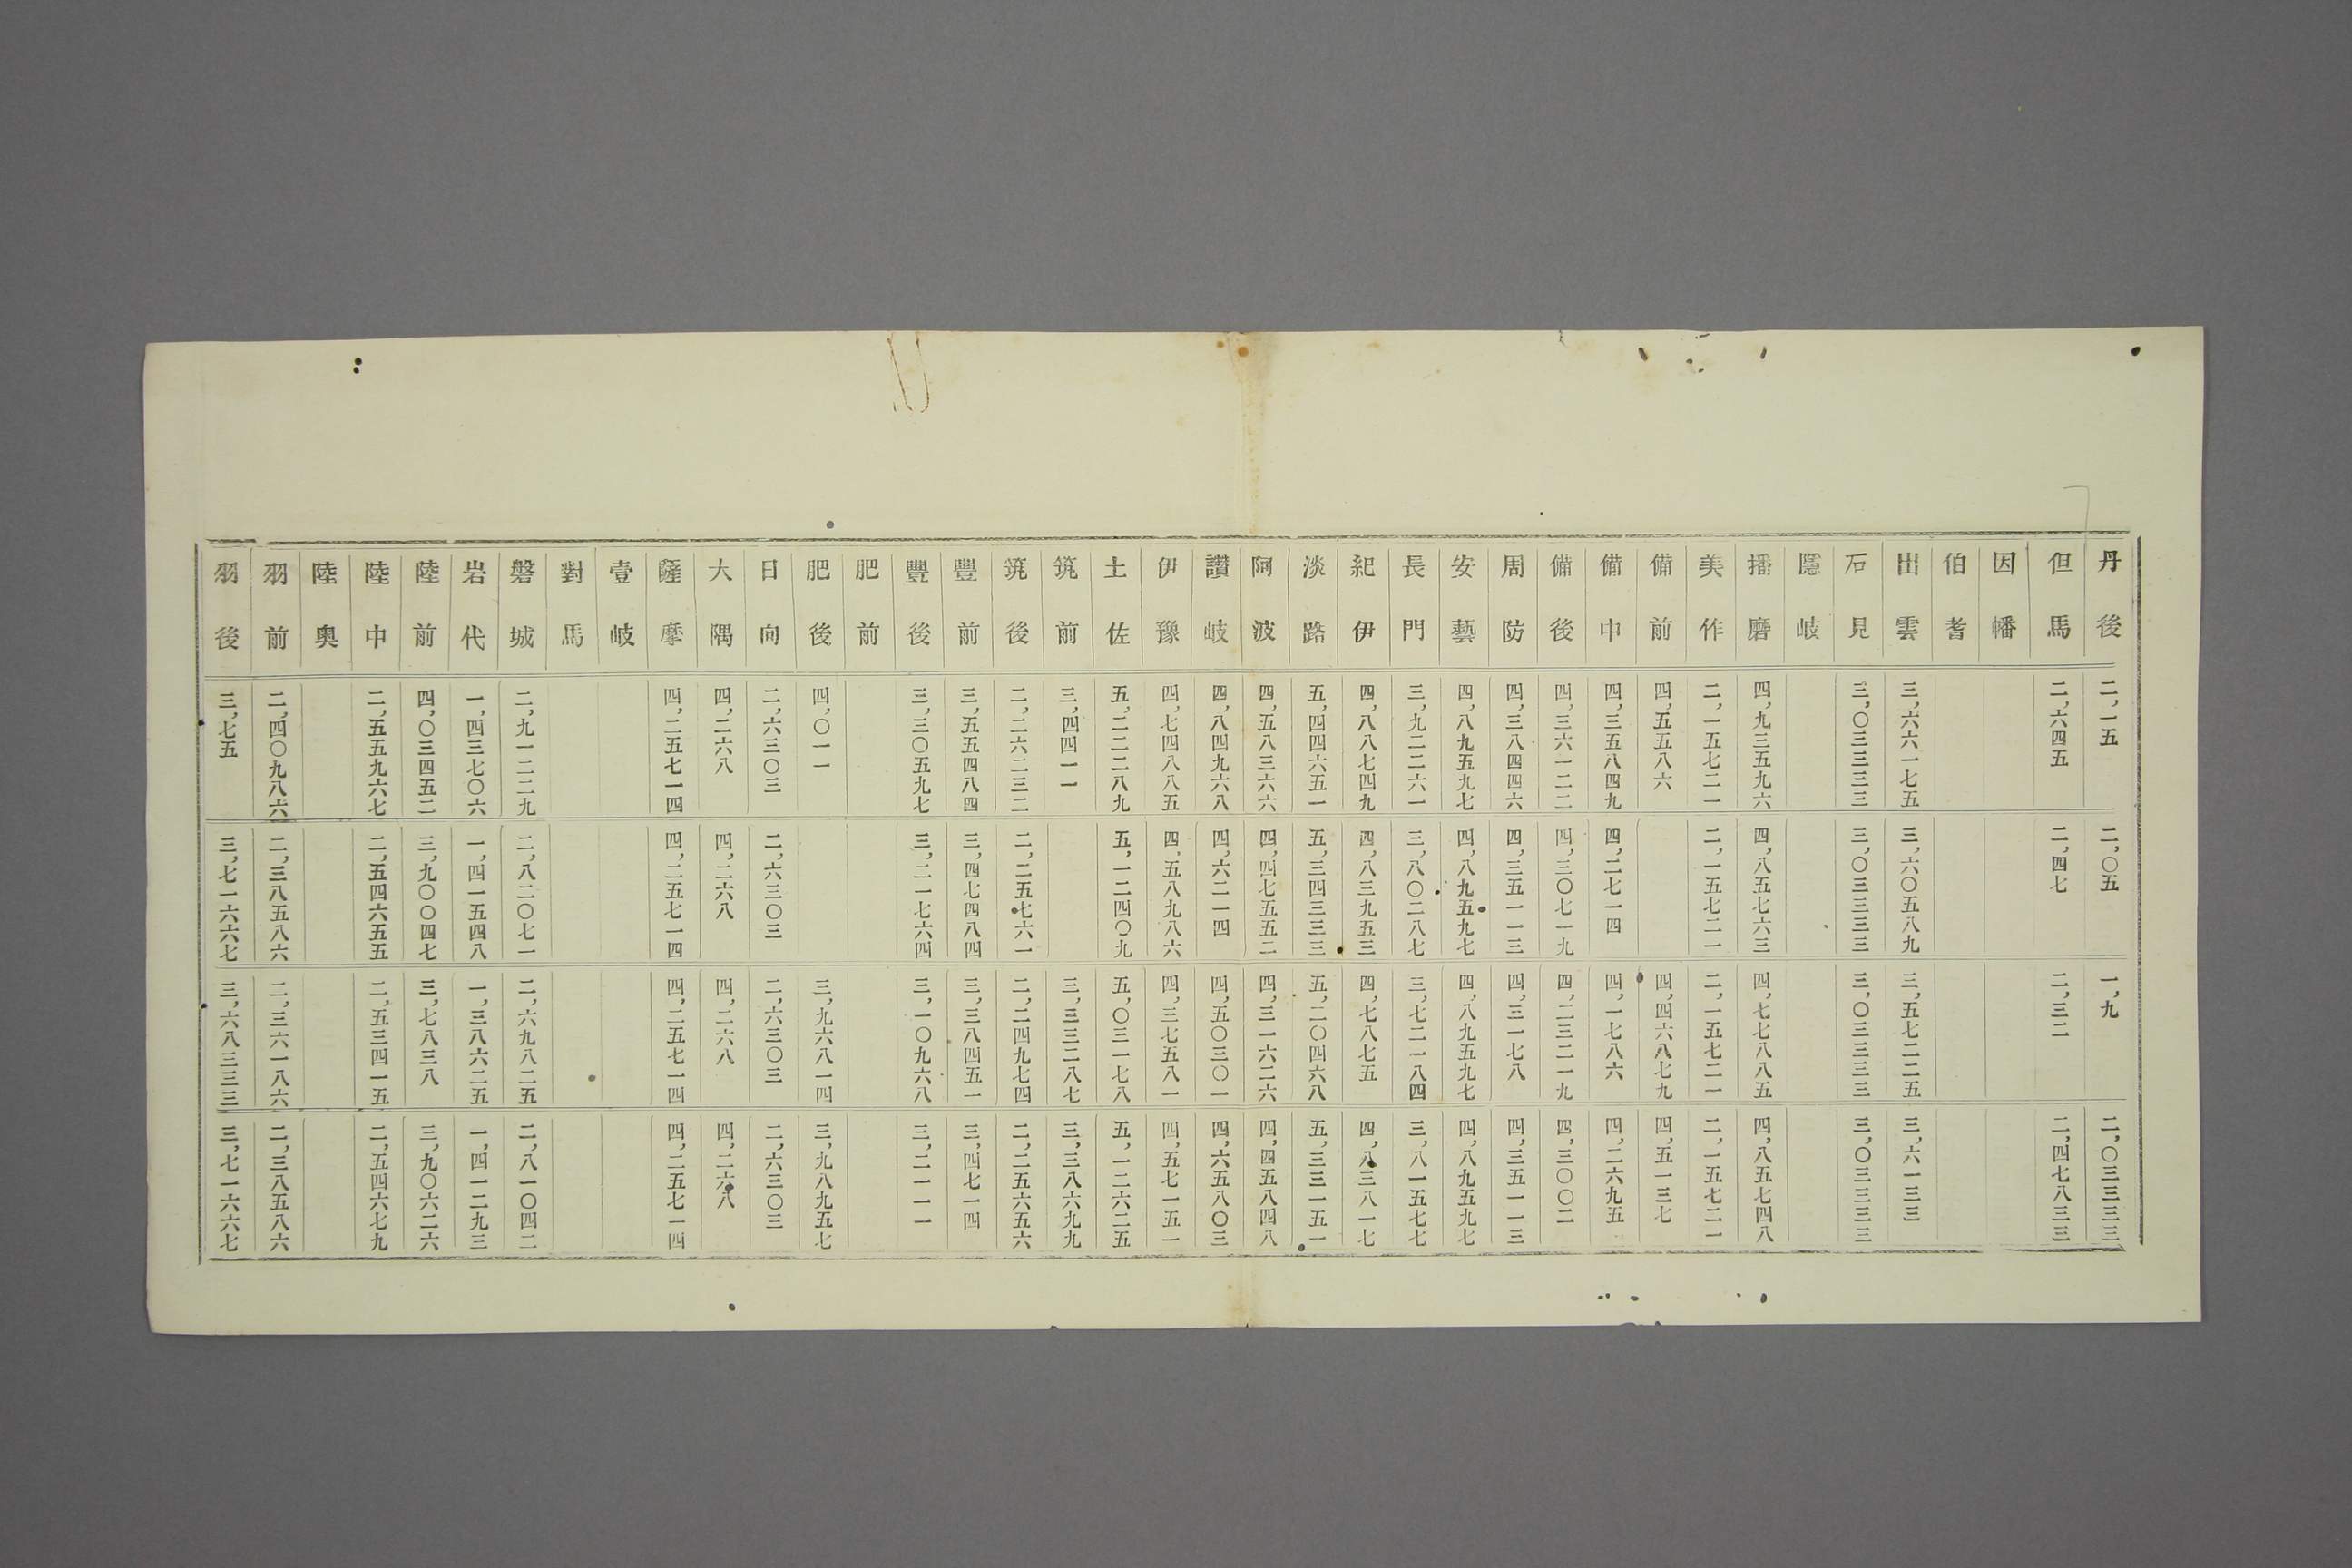 丹後 二,一五 二,〇五 一,九 二,〇三三三三
但馬 二,六四五 二,四七 二,三二 二,四七八三三
因幡
伯耆
出雲 三,六六一七五 三,六〇五八九 三,五七二二五 三,六一三三
石見 三,〇三三三三 三,〇三三三三 三,〇三三三三 三,〇三三三三
隱岐
播磨 四,九三五九六 四,八五七六三 四,七七八八五 四,八五七四八
美作 二,一五七二一 二,一五七二一 二,一五七二一 二,一五七二一
備前 四,五五八六 四,四六八七九 四,五一三七
備中 四,三五八四九 四,二七一四 四,一七八六 四,二六九五
備後 四,三六一二二 四,三〇七一九 四,二三二一九 四,三〇〇二
周防 四,三八四四六 四,三五一一三 四,三一七八 四,三五一一三
安藝 四,八九五九七 四,八九五九七 四,八九五九七 四,八九五九七
長門 三,九二二六一 三,八〇二八七 三,七二一八四 三,八一五七七
紀伊 四,八八七四九 四,八三九五三 四,七八七五 四,八三八一七
淡路 五,四四六五一 五,三四三三三 五,二〇四六八 五,三三一五一
阿波 四,五八三六六 四,四七五五二 四,三一六二六 四,四五八四八
讃岐 四,八四九六八 四,六二一四 四,五〇三〇一 四,六五八〇三
伊豫 四,七四八八五 四,五八九八六 四,三七五八一 四,五七一五一
土佐 五,二二二八九 五,一二四〇九 五,〇三一七八 五,一二六二五
筑前 三,四四一一 三,三三二八七 三,三八六九九
筑後 二,二六二三二 二,二五七六一 二,二四九七四 二,二五六五六
豐前 三,五五四八四 三,四七四八四 三,三八四五一 三,四七一四
豐後 三,三〇五九七 三,二一七六四 三,一〇九六八 三,二一一一
肥前
肥後 四,〇一一 三,九六八一四 三,九八九五七
日向 二,六三〇三 二,六三〇三 二,六三〇三 二,六三〇三
大隅 四,二六八 四,二六八 四,二六八 四,二六八
薩摩 四,二五七一四 四,二五七一四 四,二五七一四 四,二五七一四
壹岐
對馬
磐城 二,九一二二九 二,八二〇七一 二,六九八二五 二,八一〇四二
岩代 一,四三七〇六 一,四一五四八 一,三八六二五 一,四一二九三
陸前 四,〇三四五二 三,九〇〇四七 三,七八三八 三,九〇六二六
陸中 二,五五九六七 二,五四六五五 二,五三四一五 二,五四六七九
陸奥
羽前 二,四〇九八六 二,三八五八六 二,三六一八六 二,三八五八六
羽後 三,七五 三,七一六六七 三,六八三三三 三,七一六六七